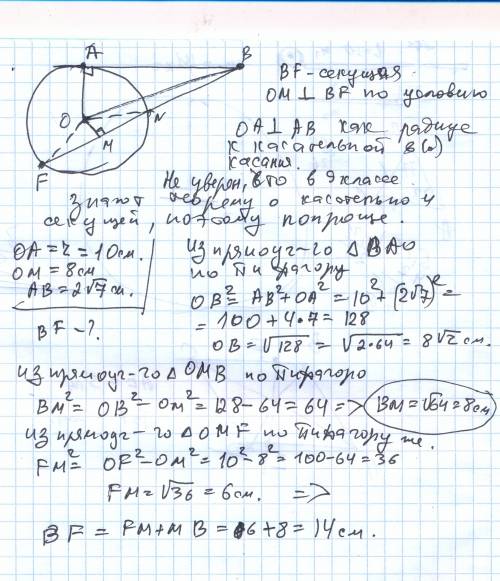 A
B
O
N
M
F
BF-секущая
OM ⊥ BF по условию
OA ⊥ AB как радиус
к касательной в (·)
касания.
Не уверен, что в 9 классе
знают теорему о касательно и
секущей, поэтому попроще.
OA = r = 10 см.
OM = 8 см
AB = 2√7 см.
BF - ?
Из прямоуг-го △ BAO
по Пифагору
OB² = AB² + OA² = 10² + (2√7)² =
= 100 + 4·7 = 128
OB = √128 = √2·64 = 8√2 см.
Из прямоуг-го △ OMB по Пифагору
BM² = OB² - OM² = 128 - 64 = 64 => BM = √64 = 8 см
Из прямоуг-го △ OMF по Пифагору же.
FM² = OF² - OM² = 10² - 8² = 100 - 64 = 36
FM = √36 = 6 см. =>
BF = FM + MB = 6 + 8 = 14 см.